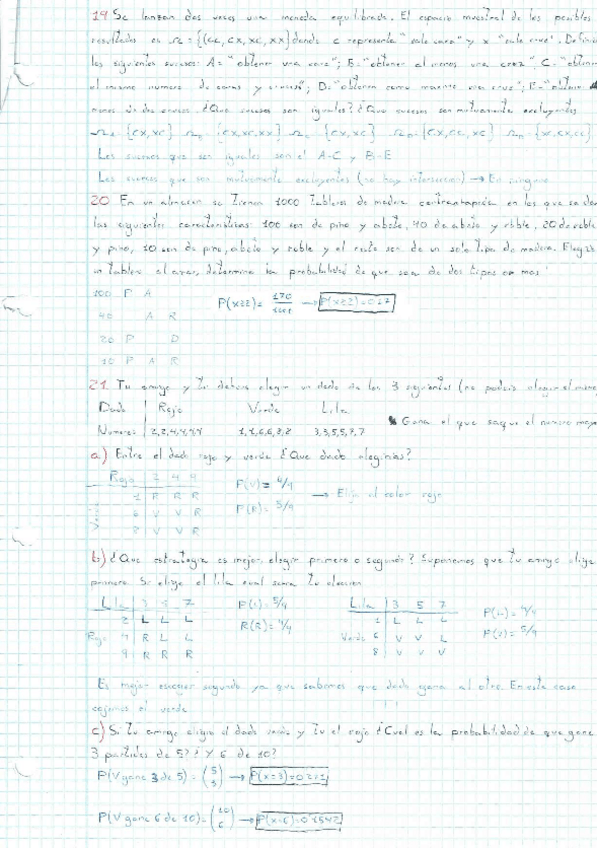 19 Se lanzan dos veces una moneda equilibrada. El espacio muestral de los posibles
resultados es Ω={CC, CX, XC, XX} donde C representa "sale cara" y X "sale cruz". Definir
los siguientes sucesos: A="obtener una cara"; B="obtener al menos una cruz", C="obtener
el mismo numero de caras y cruces"; D="obtener como maximo una cruz";
menos de dos cruces. ¿Que sucesos son iguales? ¿Que sucesos son mutuamente excluyentes
{CX,XC} {CX,XC,XX} {CX,XC} {CX,CC,XC} {XC,CX,CC}
Los sucesos que son iguales son el A=C y
Los sucesos que son mutuamente excluyentes (no hay interseccion) → En ninguno
20 En un almacen se tienen 1000 tableros de madera contrachapada en los que se dan
las siguientes caracteristicas: 100 son de pino y abeto, 40 de abeto y roble, 20 de roble
y pino, 10 son de pino, abeto y roble y el resto son de un solo tipo de madera. Elegido
un tablero al azar, determine la probabilidad de que sea de dos tipos o mas
100 P A
40 A R
P(x≥2)= 170/1000 → P(x≥2)=0'17
20 P D
10 P A R
21 Tu amigo y tu debeis elegir un dado de los 3 siguientes (no podeis elegir el mismo
Dado Rojo Verde Lila
Numeros 2,2,4,4,9,9 1,1,6,6,8,8 3,3,5,5,7,7 * Gana el que saque el numero mayor
a) Entre el dado rojo y verde ¿Que dado elegirias?
Rojo 2 4 9
1 R R R
6 V V R
8 V V R
Verde
P(V)= 4/9
P(R)= 5/9
→ Elijo el color rojo
b) ¿Que estrategia es mejor, elegir primero o segundo? Suponemos que tu amigo elige
primero. Si elige el lila cual seria tu eleccion
Lila 3 5 7
2 L L L
Rojo 4 R L L
9 R R R
P(L)= 5/9
R(R)= 4/9
Lila 3 5 7
1 L L L
Verde 6 V V L
8 V V V
P(L)= 4/9
P(V)= 5/9
Es mejor escoger segundo ya que sabemos que dado gana al otro. En este caso
cojemos el verde
c) Si tu amigo eligio el dado verde y tu el rojo ¿Cual es la probabilidad de que gane
3 partidas de 5? ¿Y 6 de 10?
P(V gane 3 de 5) = (5 3) →
P(V gane 6 de 10) = (10 6) → P(x=6)=0'1542